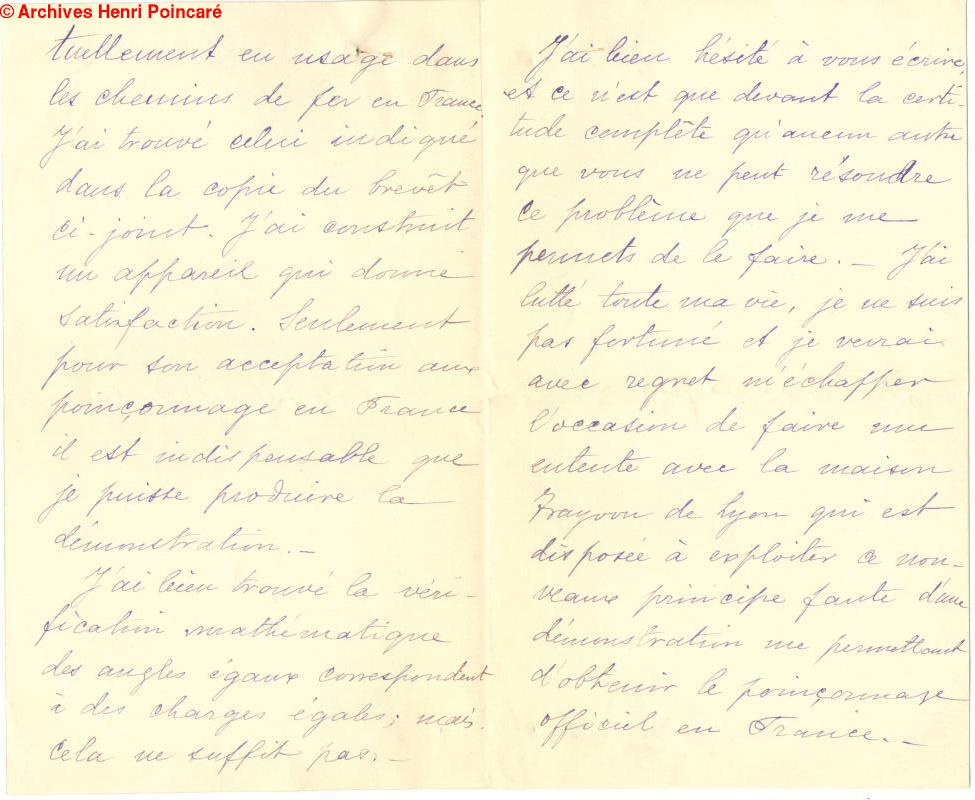 © Archives Henri Poincaré
tuellement en usage dans
les chemins de fer en France.
J'ai trouvé celui indiqué
dans la copie du brevêt
ci-joint. J'ai construit
un appareil qui donne
satisfaction. Seulement
pour son acceptation aux
poinçonnage en France
il est indispensable que
je puisse produire la
démonstration. _
J'ai bien trouvé la véri-
fication mathématique
des angles égaux correspondent
à des charges égales; mais
cela ne suffit pas. _
J'ai bien hésité à vous écrire,
et ce n'est que devant la certi-
tude complête qu'aucun autre
que vous ne peut résoudre
ce problême que je me
permets de le faire. _ J'ai
lutté toute ma vie, je ne suis
pas fortuné et je verrai
avec regret m'échapper
l'occasion de faire une
entente avec la maison
Trayvou de Lyon qui est
disposée à exploiter ce nou-
veaux principe faute d'une
démonstration me permettant
d'obtenir le poinçonnage
officiel en France. _